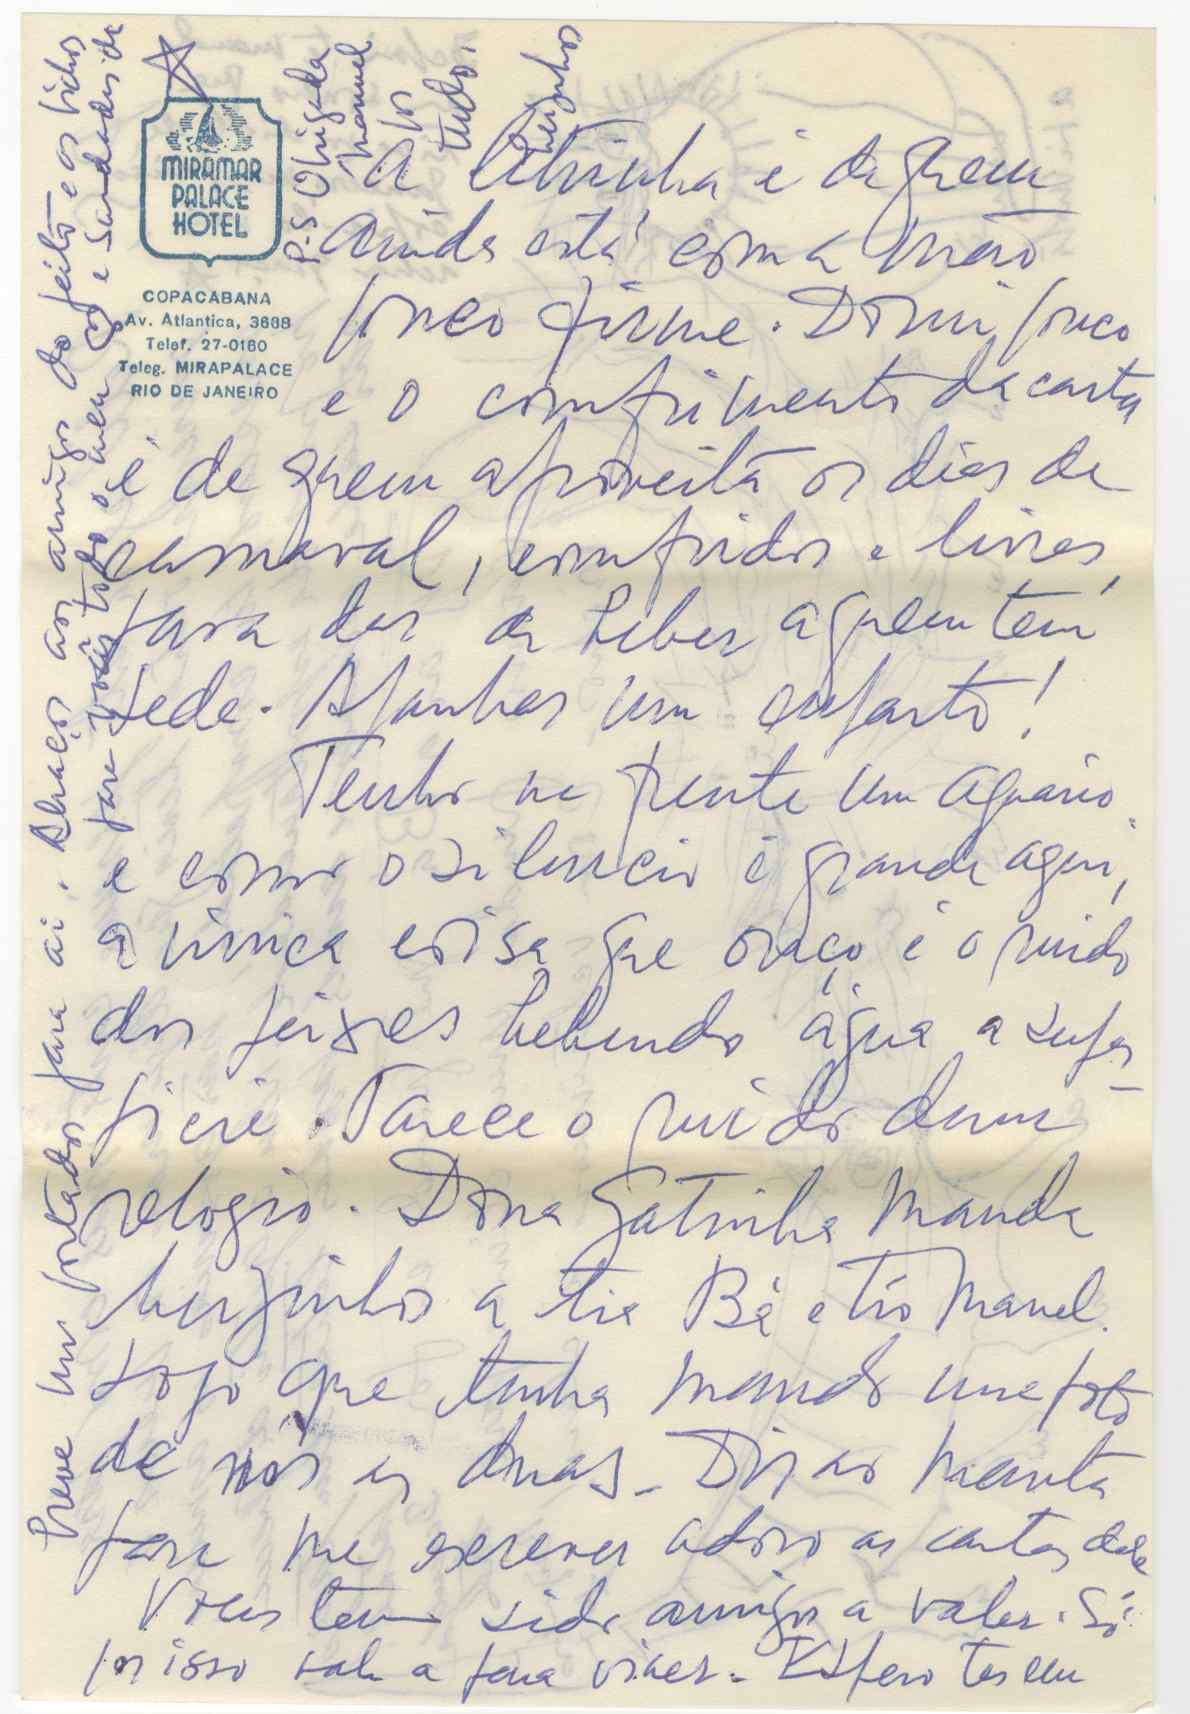 MIRAMAR
PALACE
HOTEL
COPACABANA
Av. Atlantica, 3668
Telef. 27-0160
Teleg. MIRAPALACE
RIO DE JANEIRO
P.S Obrigada
Manuel
por
tudo.
Beijinhos
A letrinha é de quem
ainda está com a mão
pouco firme. Dormi pouco
e o comprimento da carta
é de quem aproveita os dias de
carnaval, compridos e livres,
para dar a beber a quem tem
sede. Apanhas um enfarto!
Tenho na frente um aquário
e como o silencio é grande aqui,
a unica coisa que ouço é o ruido
dos peixes bebendo água a super-
ficie. Parece o ruido dum
relogio. Dona Gatinha manda
beijinhos a tia Bá e tio Manel.
Logo que tenha mando uma foto
de nós as duas. Diz ao
para me escrever adoro as cartas dele
Voces tem sido amigos a valer. Só
por isso vale a pena viver. Espero ter em
breve um portador para aí. Abraços aos amigos do peito e os bichos
para vocês todo o meu e saudades da